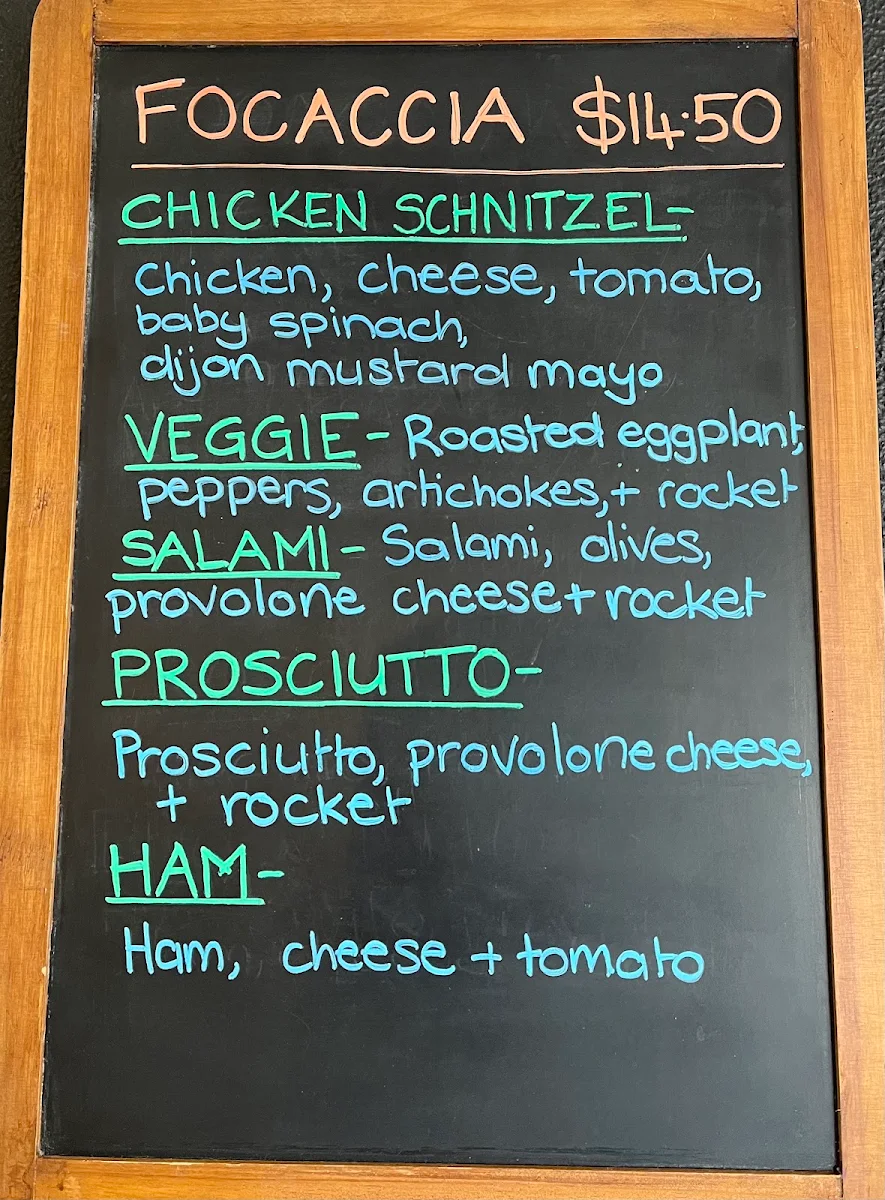 FOCACCIA $14.50
CHICKEN SCHNITZEL-
Chicken, cheese, tomato,
baby spinach,
dijon mustard mayo
VEGGIE - Roasted eggplant,
peppers, artichokes, + rocket
SALAMI - Salami, olives,
provolone cheese + rocket
PROSCIUTTO-
Prosciutto, provolone cheese,
+ rocket
HAM-
Ham, cheese + tomato